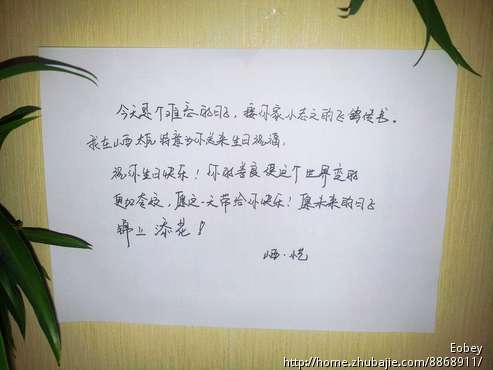 今天是个难忘的日子，接你家小志文的飞鸽传书。
我在山西太原特意为你发来生日祝福，
祝你生日快乐！你的善良使这个世界变的
更加奇妙，愿这一天带给你快乐！愿未来的日子
锦上添花！
山西·
Eobey
http://home.zhubajie.com/8868911/